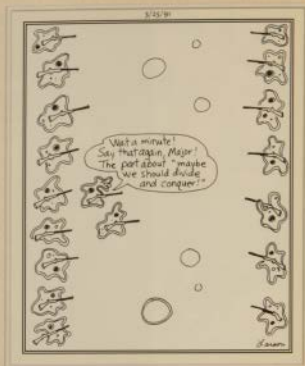 3/25/91
Wait a minute!
Say that again, Major!
The part about "maybe
we should divide
and conquer!"
Larson